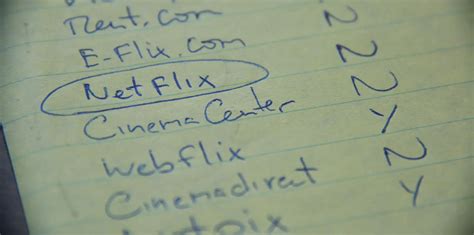 Rent.com N
E-Flix.com N
NetFlix N
CinemaCenter Y
webflix N
Cinemadirect Y